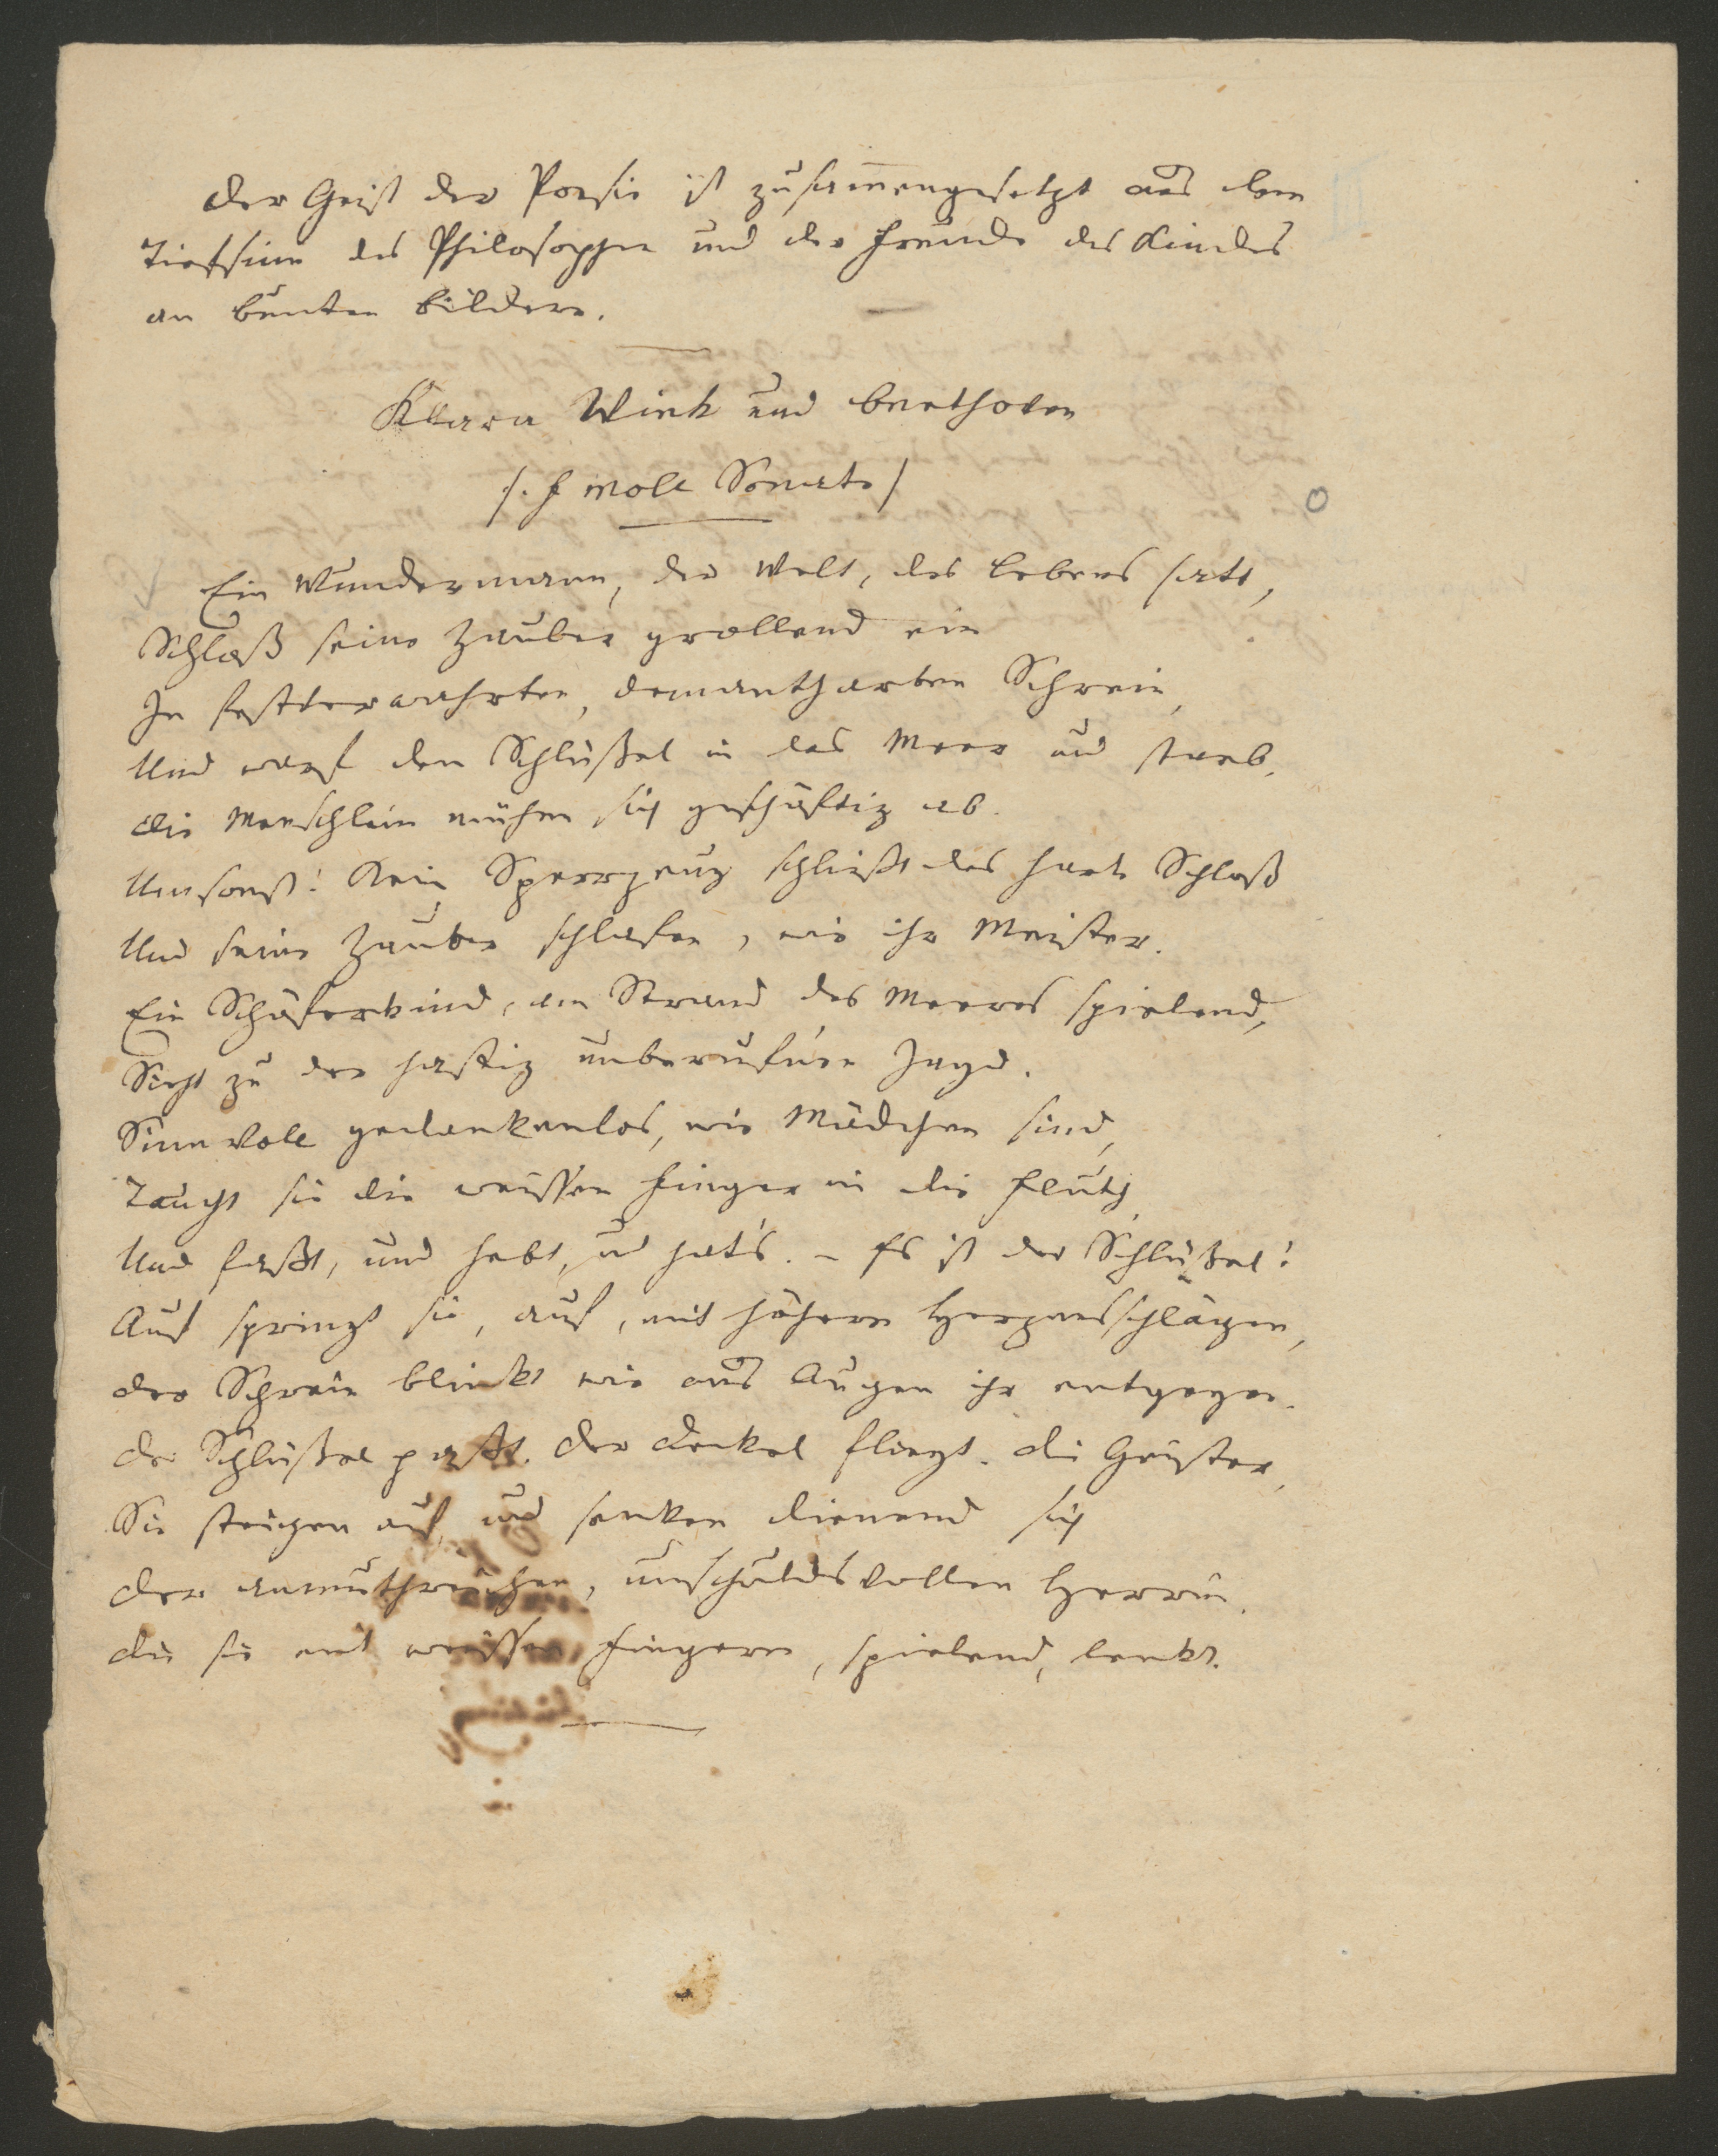 Der Geist der Poesie ist zusam̄engesetzt aus dem
Tiefsinn des Philosophen und der Freude des Kindes
an bunten Bildern.
Klara Wiek und Beethoven
/: F moll Sonate /
Ein Wundermann, der Welt, des Lebens satt,
Schloß seine Zauber grollend ein
In festverwahrten, demantharten Schrein,
Und warf den Schlüßel in das Meer und starb.
Die Menschlein mühen sich geschäftig ab.
Umsonst! Kein Sperrzeug schließt das harte Schloß
Und seine Zauber schlafen, wie ihr Meister.
Ein Schäferkind, am Strand des Meeres spielend,
Sieht zu der hastig unberufnen Jagd.
Sinnvoll gedankenlos, wie Mädchen sind,
Taucht sie die weissen Finger in die Fluth
Und faßt, und hebt, und hat's. – Es ist der Schlüßel!
Auf springt sie, auf, mit höhern Herzensschlägen,
Der Schrein blinkt wie aus Augen ihr entgegen.
Der Schlüßel paßt. Der Deckel fliegt. Die Geister,
Sie steigen auf und senken dienend sich
Der anmuthreichen, unschuldsvollen Herrin.
Die sie mit weissen Fingern, spielend, lenkt.